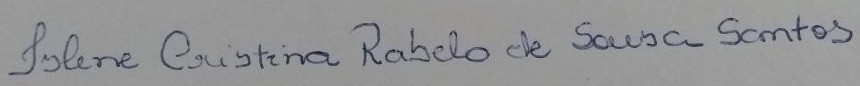 Joslene Cristina Rabelo de Sousa Santos